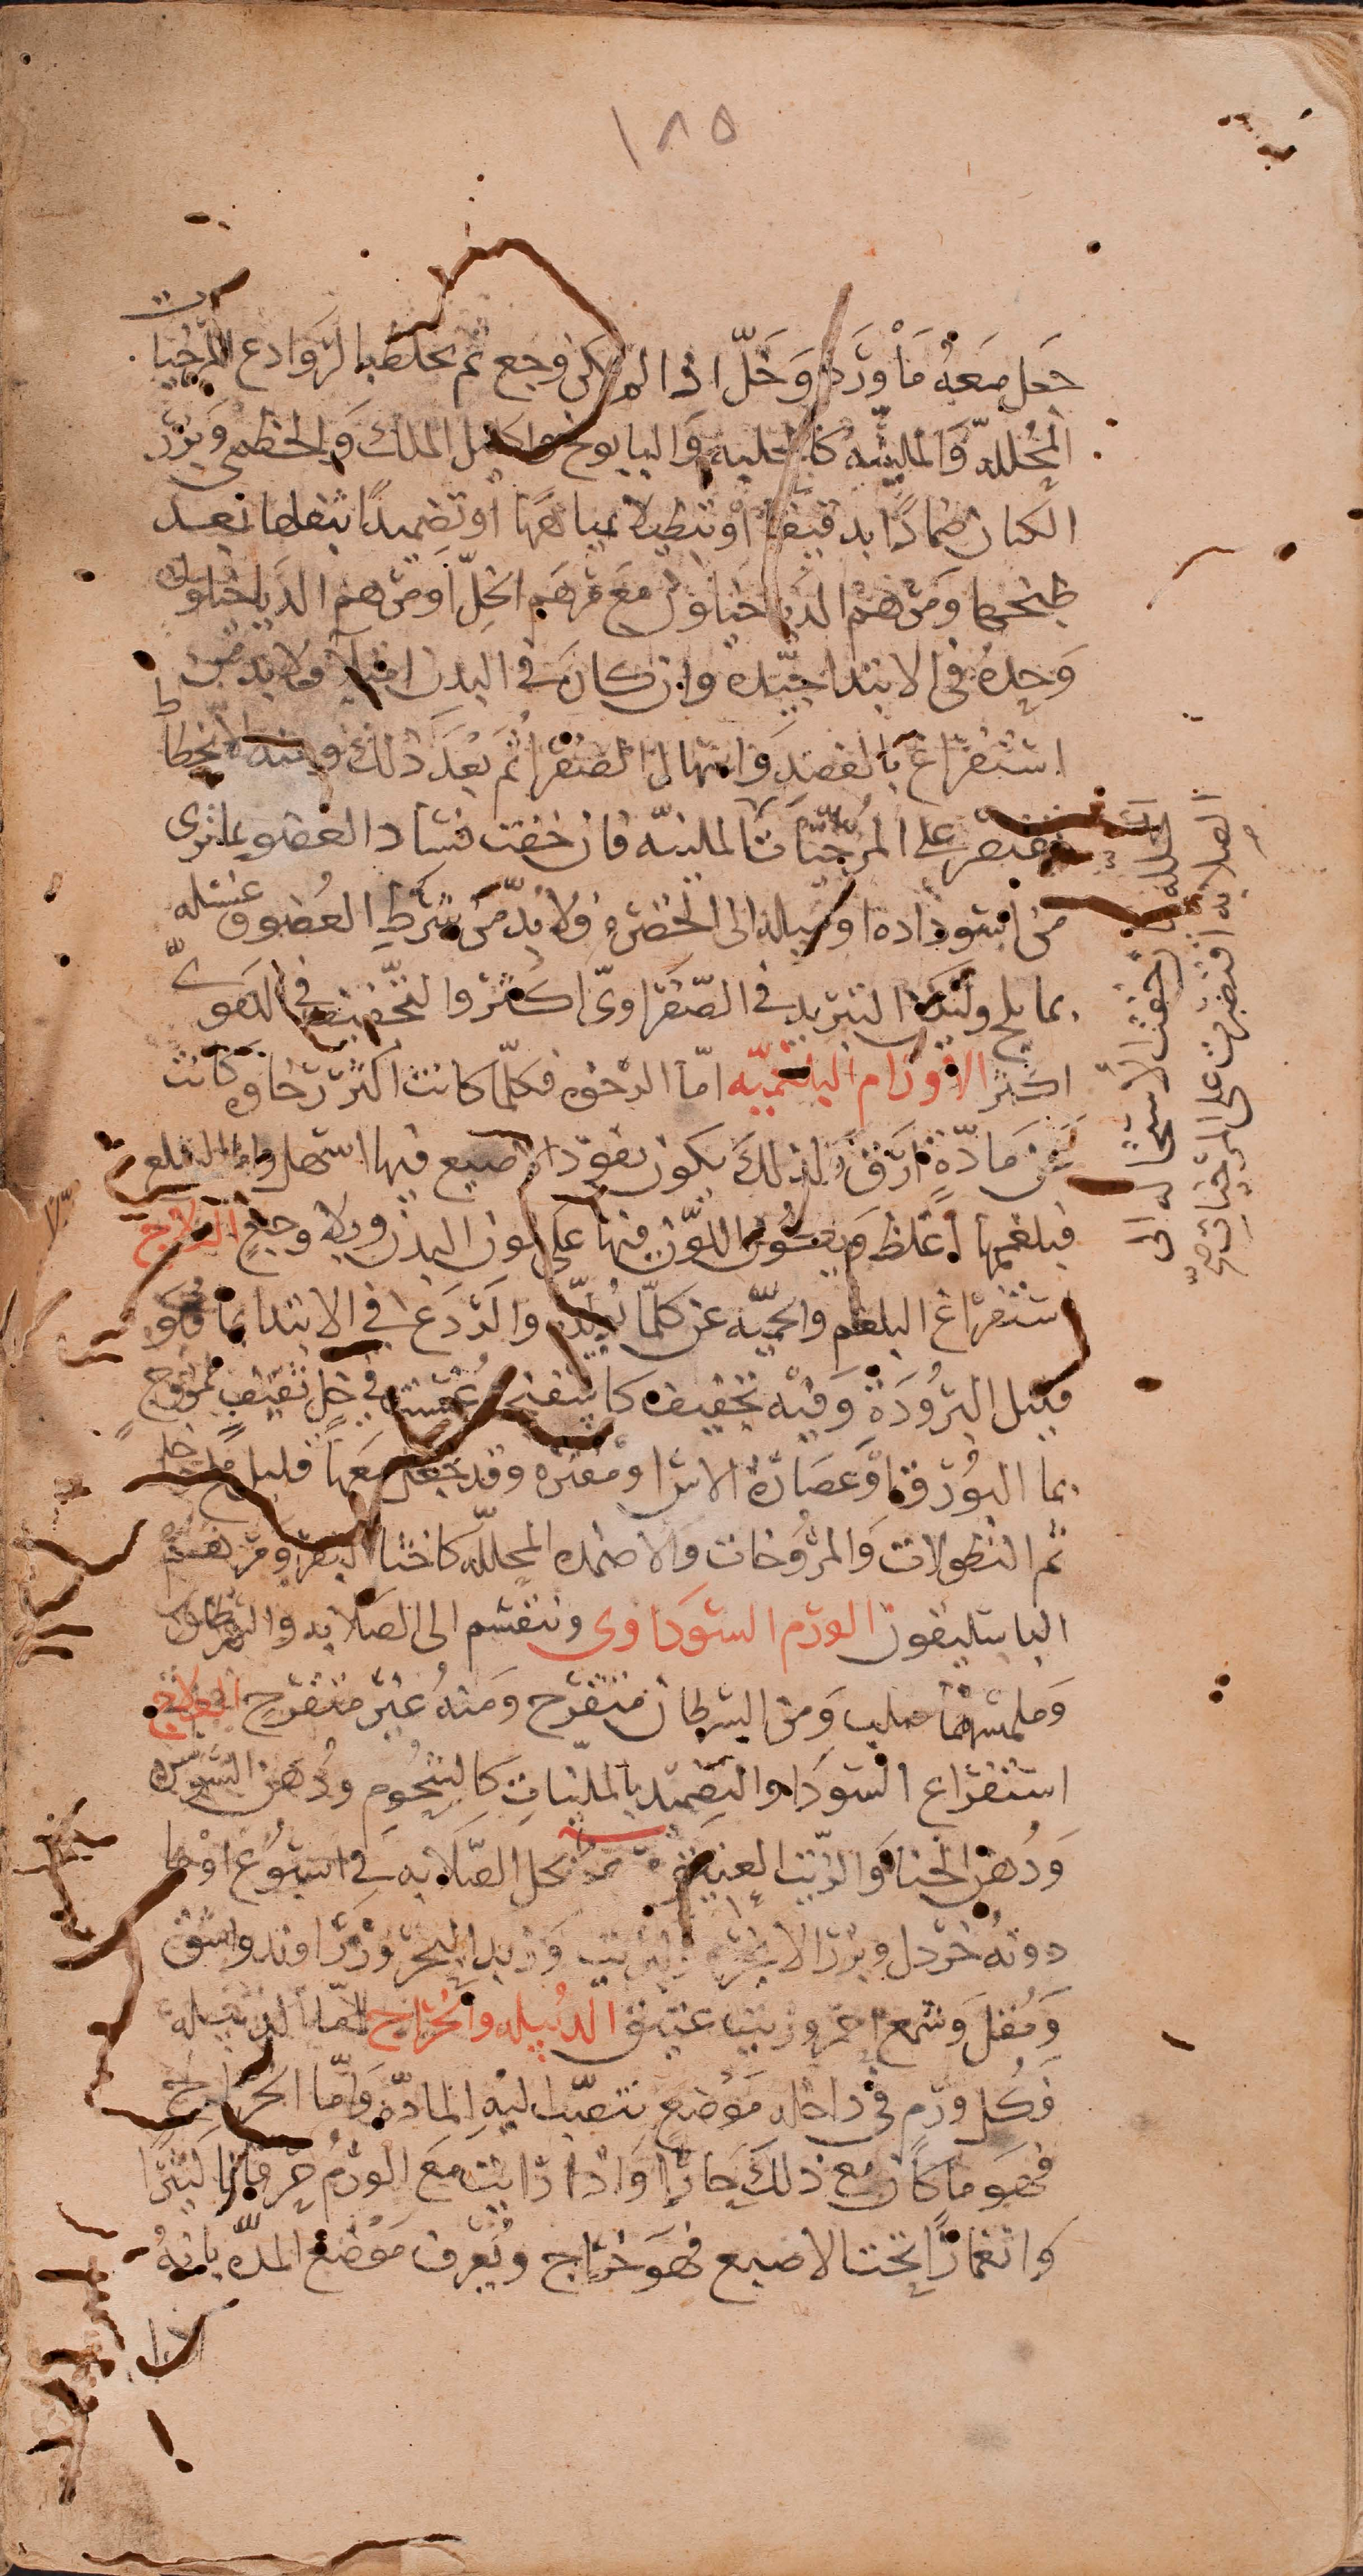 ١٨٥
جعل معه ماورد وخل اذا لم يكن وجع ثم يخلط بالروادع المرخيات
المحللة والملينة كالحلبه والبابونج واكليل الملك والخطمي وبزر
الكتان ضمادا بدقيقها او تنطيلا بمياهها او تضميدا بثفلها بعد
طبخها ومرهم الدياخيلون مع مرهم الخل او مرهم الدياخيلون
وحده في الابتدا جيده وان كان في البدن امتلا فلابد من
استفراغ بالفصد واسهال الصفرا ثم بعد ذلك وعند الانحطاط
تقتصر على المرخيات الملينه فان خفت فساد العضو بما ترى
من اسوداده او ميله الى الخضرة فلابد من شرط العضو وغسله
بما ملح وليكن التبريد في الصفراوي اكثر والتجفيف في الدموي
اكثر الاورام البلغميه اما الرخوه فكلما كانت اكثر رخاوه كانت
عن مادة ارق ولذلك يكون نفوذ الاصبع فيها اسهل واما السلع
فبلغمها اغلظ ويكون اللون فيها على لون البدن وبلا وجع العلاج
استفراغ البلغم والحميه عن كلما يولده والردع في الابتدا بما هو
قليل البرودة وفيه تجفيف كاسفنج غمست في خل ثقيف ممزوج
بما البورق او عصارة الاس او مغره وقد يجعل معها قليل خل
ثم النطولات والمروخات والاضمده المحلله كاخثا البقر ومرهم
الباسليقون الورم السوداوى وينقسم الى الصلابه والسرطان
وملمسهما صلب ومن السرطان متقرح ومنه غير متقرح العلاج
استفراغ السودا والتضميد بالملينات كالشحوم ودهن السوسن
ودهن الحنا والزيت العتيق يحل الصلابه في اسبوع او ما
دونه خردل وبزر الانجره وكبريت وزبد البحر وزراوند واشق
ومقل وشمع احمر وزيت عتيق الدبيله والخراج اما الدبيله
فكل ورم في داخله موضع تنصب اليه المادة واما الخراج
فهو ما كان مع ذلك حارا واذا رايت مع الورم حمره
وانغمازا تحت الاصبع فهو خراج ويعرف موضع المده بانه
المحلله فان خفت الاستحاله الى
الصلابه اقتصرت على المرخيات صح